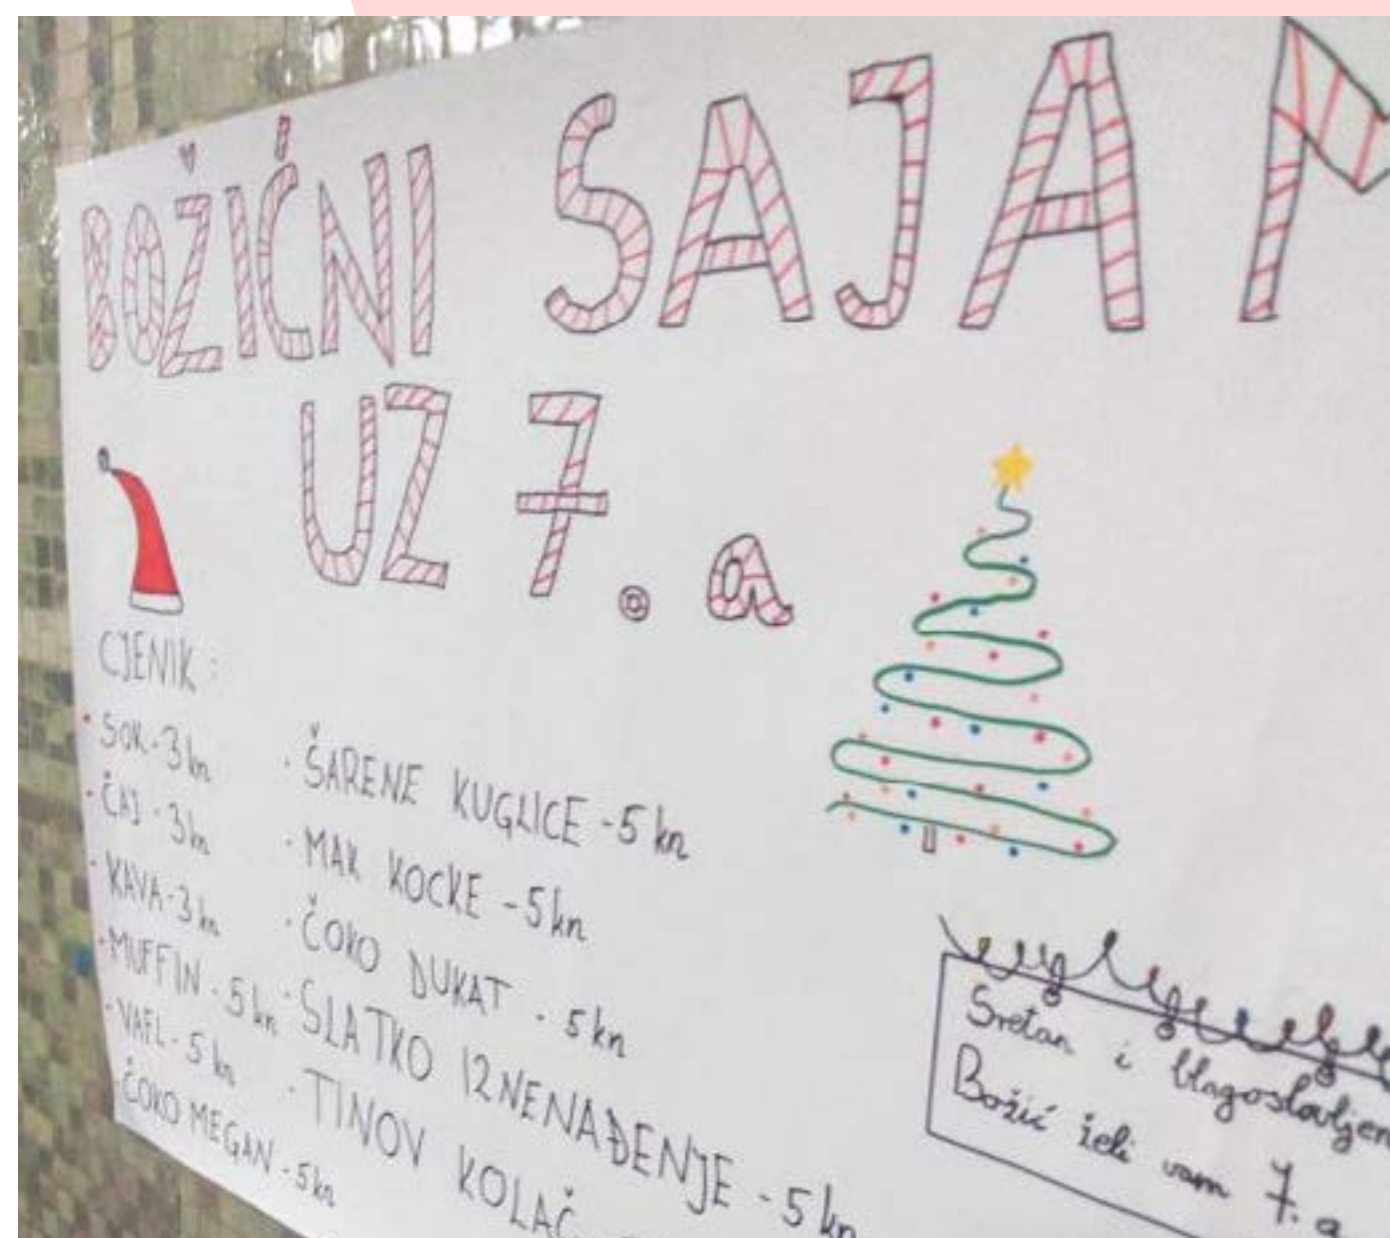 BOŽIĆNI SAJAM
UZ 7.a
CJENIK:
· SOK - 3 kn
· ČAJ - 3 kn
· KAVA - 3 kn
· MUFFIN - 5 kn
· VAFL - 5 kn
· ČOKO MEGAN - 5 kn
· ŠARENE KUGLICE - 5 kn
· MAK KOCKE - 5 kn
· ČOKO DUKAT - 5 kn
· SLATKO IZNENAĐENJE - 5 kn
· TINOV KOLAČ
Sretan i blagoslovljen
Božić želi vam 7. a